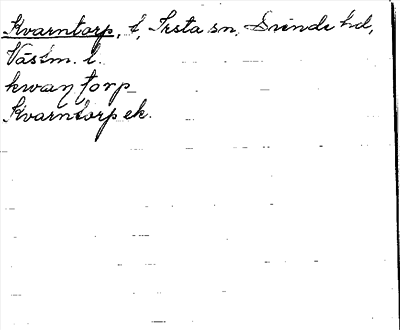 Kvarntorp, t, Irsta sn, Siende hd,
Västm. l.
kwaṇ torp
Kvarntorp ek.